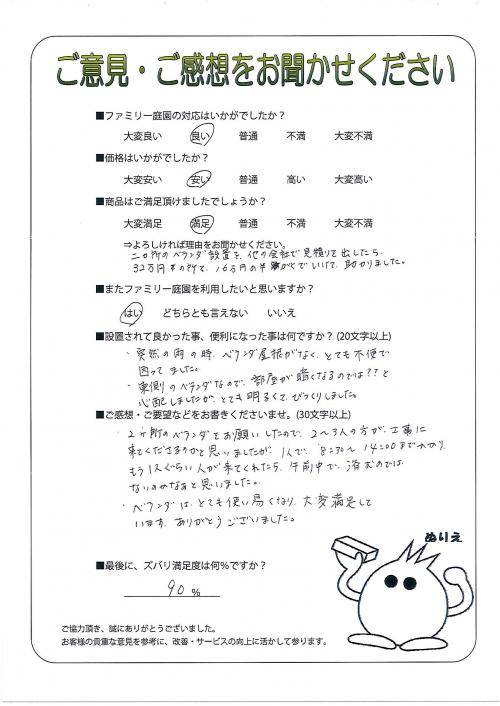 ご意見・ご感想をお聞かせください
■ファミリー庭園の対応はいかがでしたか？
大変良い 良い 普通 不満 大変不満
■価格はいかがでしたか？
大変安い 安い 普通 高い 大変高い
■商品はご満足頂けましたでしょうか？
大変満足 満足 普通 不満 大変不満
⇒よろしければ理由をお聞かせください。
二ヶ所のベランダ設置を、他の会社で見積りを出したら、
32万円の所を、16万円の半がくでいけて、助かりました。
■またファミリー庭園を利用したいと思いますか？
はい どちらとも言えない いいえ
■設置されて良かった事、便利になった事は何ですか？(20文字以上)
・突然の雨の時、ベランダ屋根がなく、とても不便で
困ってました。
・東側のベランダなので、部屋が暗くなるのでは??と
心配しましたが、とても明るくて、びっくりしました。
■ご感想・ご要望などをお書きくださいませ。(30文字以上)
・2ヶ所のベランダをお願いしたので、2〜3人の方が、工事に
来てくださるのかと思いましたが、1人で、8:30〜14:00までかかり、
もう1人ぐらい人が来てくれたら、午前中で、済むのでは
ないのかなぁと思いました。
・ベランダは、とても使い易くなり、大変満足して
います。ありがとうございました。
ぬりえ
■最後に、ズバリ満足度は何％ですか？
90 %
ご協力頂き、誠にありがとうございました。
お客様の貴重な意見を参考に、改善・サービスの向上に活かして参ります。